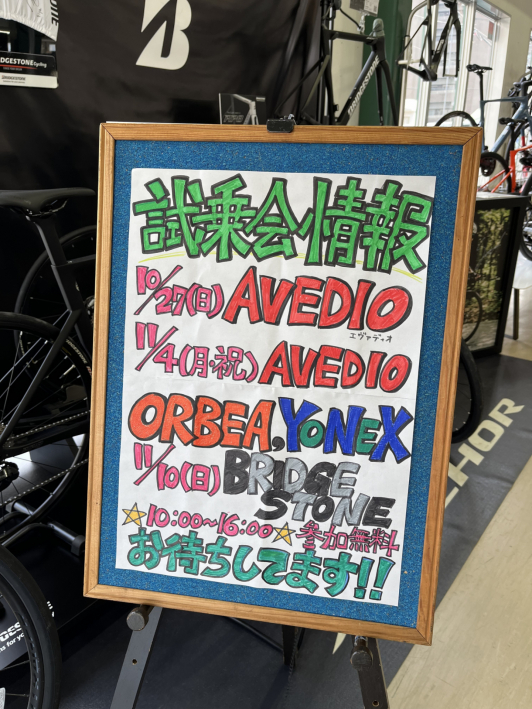 B
BRIDGESTONE Cycling
試乗会情報
10/27(日) AVEDIO
エヴァディオ
11/4(月・祝) AVEDIO
ORBEA, YONEX
11/10(日) BRIDGE
STONE
☆10:00~16:00☆ 参加無料
お待ちしてます!!
CHOR